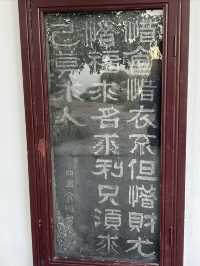 惜食惜衣不但惜財尤
惜福求名求利只須求
己莫求人